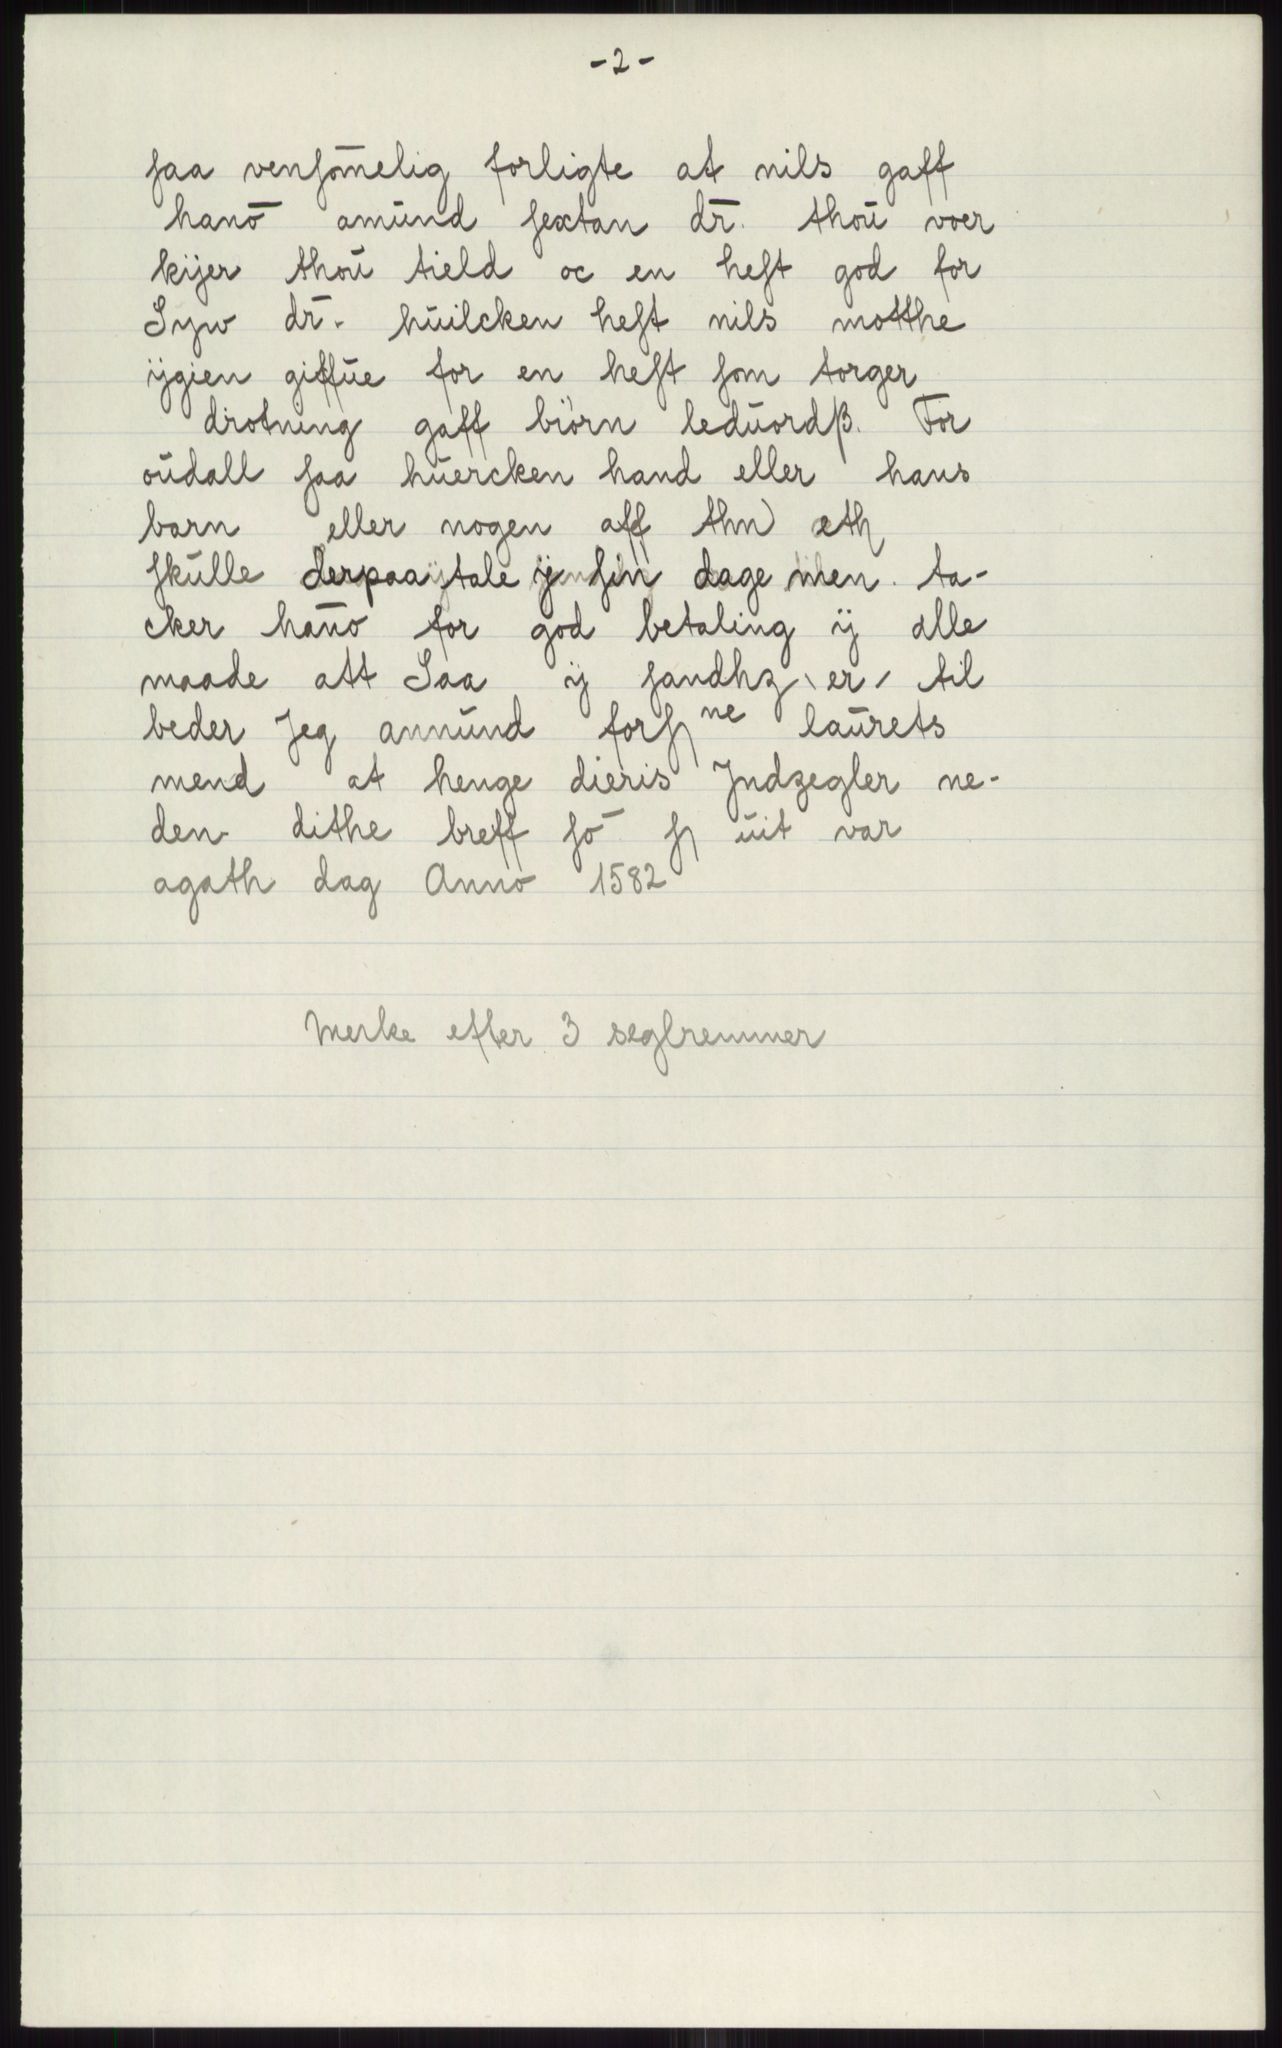 -2-
ſaa venſōmelig forligte at nils gaff
hanō amūnd ſextan dr̄. thoū voer
kijer thoū tield oc en heſt god for
Syw dr̄. hūilcken heſt nils motthe
ÿgien giffūe for en heſt ſom torger
drotning gaff biörn ledūordß. For
oūdall ſaa hūercken hand eller hans
barn eller nogen aff thn) eth
ſkūlle derpaa tale ÿ ſin dage men. ta-
cker hanō for god betaling ÿ alle
maade att Saa ÿ ſandhz er til
beder Jeg annūnd forſ ne laūrets
mend at henge dieris Jndzegler ne-
den dithe breff ſō ſ ūit var
agath dag Anno 1582
Merke efter 3 seglremmer